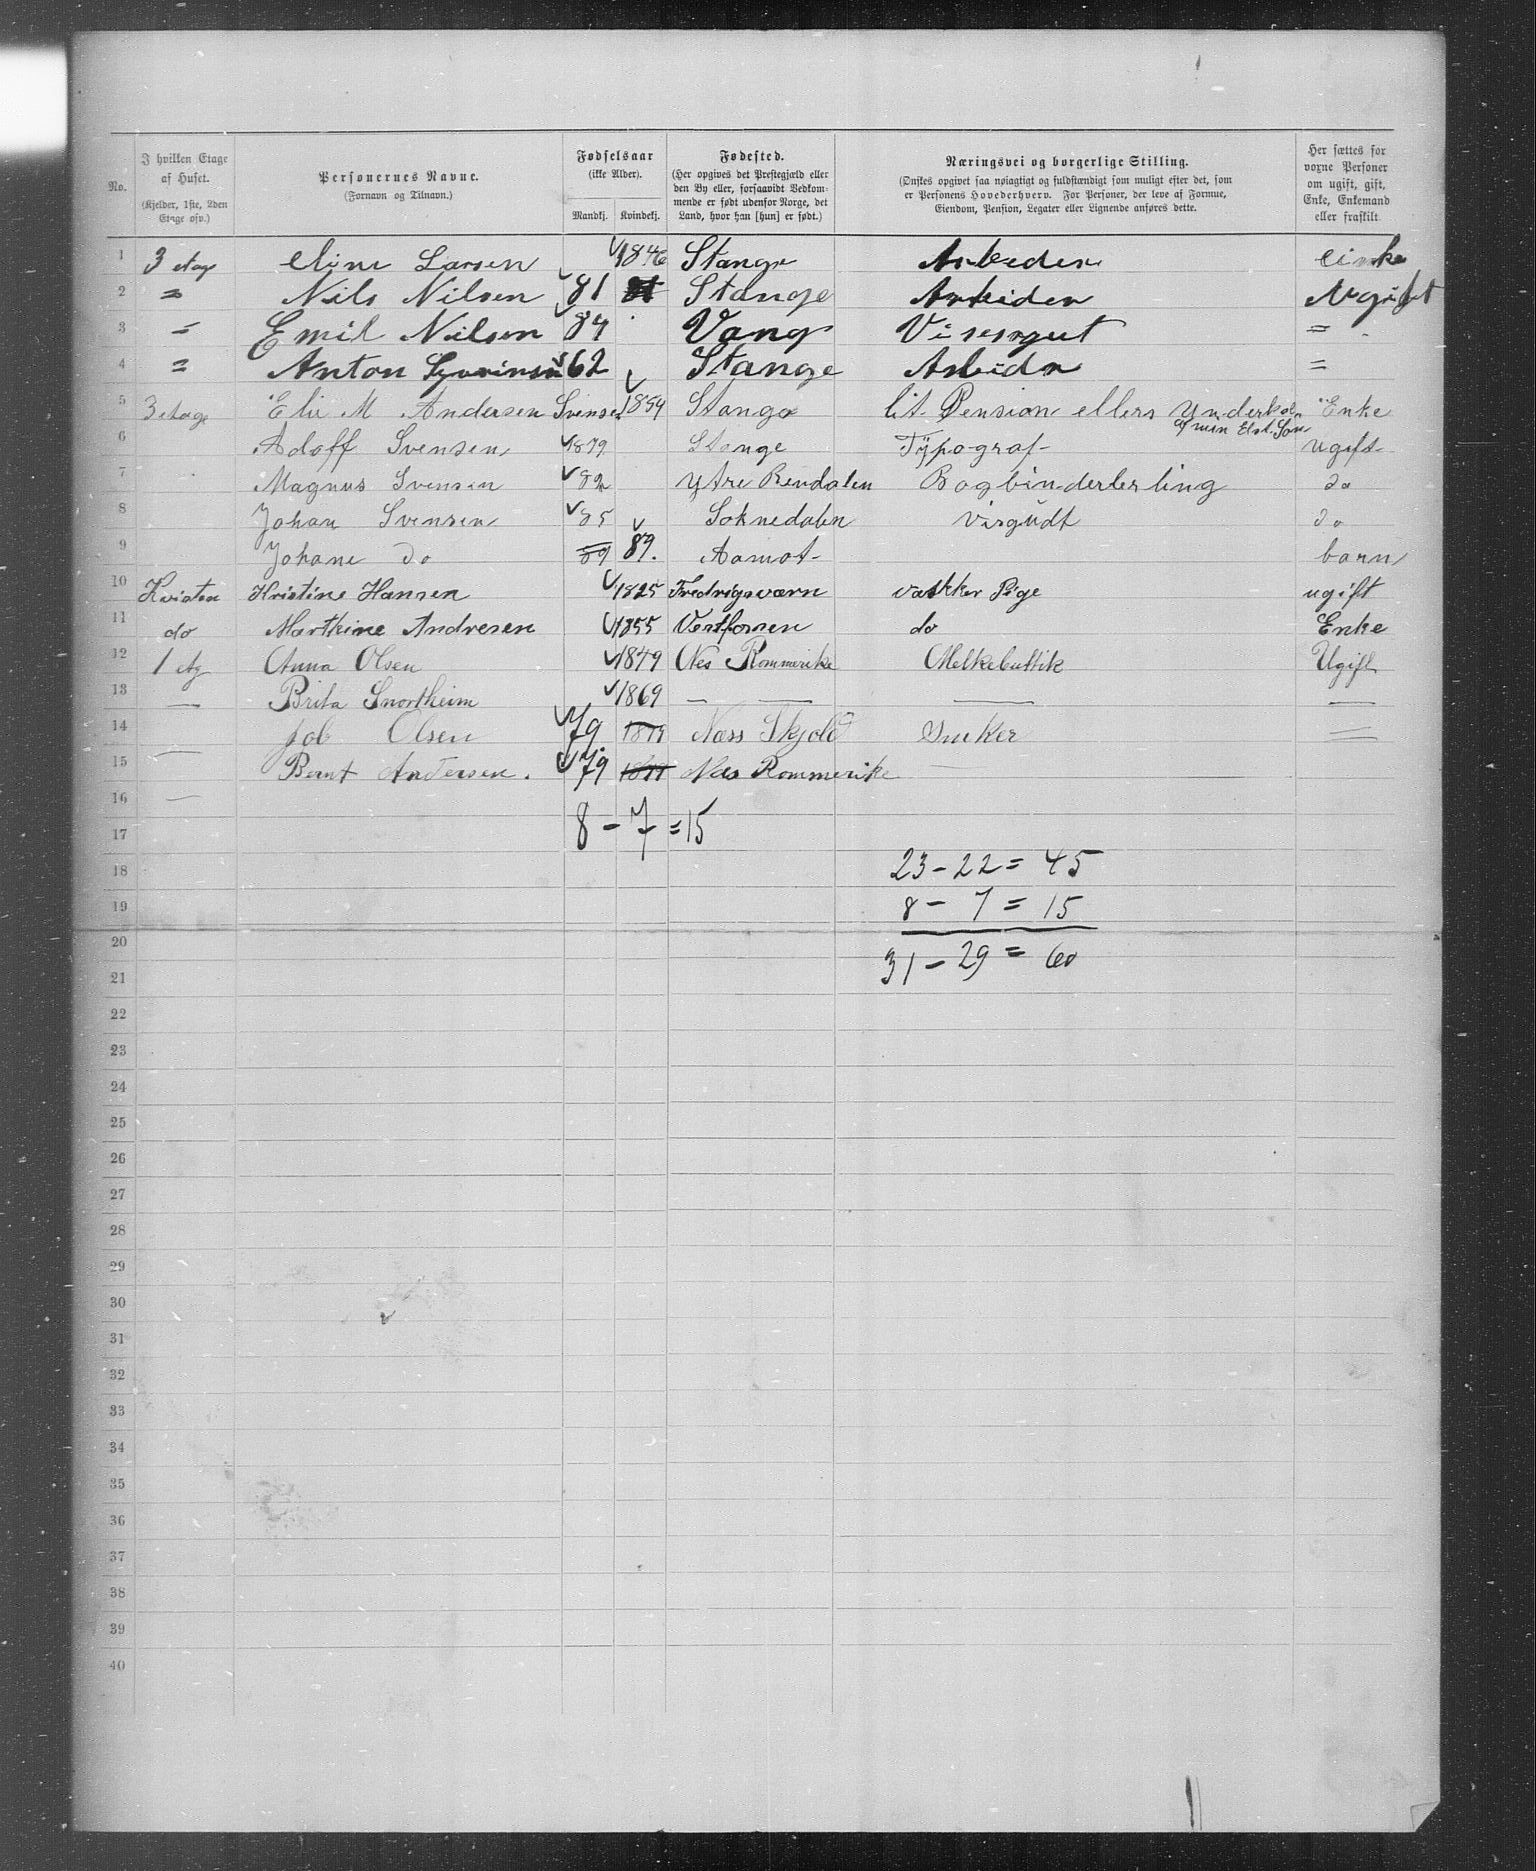 No. | I hvilken Etage af Huset. (Kjelder, 1ste, 2den Etage osv.) | Personernes Navne. (Fornavn og Tilnavn.) | Fødselsaar (ikke Alder). Mandkj. Kvindekj. | Fødested. (Her opgives det Prestegjæld eller den By eller, forsaavidt Vedkommende er født udenfor Norge, det Land, hvor han [hun] er født.) | Næringsvei og borgerlige Stilling. (Ønskes opgivet saa nøiagtigt og fuldstændigt som muligt efter det, som er Personens Hovederhverv. For Personer, der leve af Formue, Eiendom, Pension, Legater eller Lignende anføres dette. | Her sættes for voxne Personer om ugift, gift, Enke, Enkemand eller fraskilt
1 3 etage Eline Larsen 1846 Stange Arbeder Einke
2 " Nils Nilsen 81 Stange Arbeider Ugift
3 " Emil Nilsen 84 Vang Visergut "
4 " Anton 62 Stange Arbeidr "
5 3 etage Elie M Andersen Svensen 1854 Stange lit Pension ellers Underhol. af min Elst. Søn Enke
6 Adolf Svensen 1879 Stange Typograf ugift
7 Magnus Svensen 82 Ytre Rendalen Bogbinderlerling do
8 Johan Svensen 85 Soknedalen Visgudt do
9 Johane do 89 89. Aamot barn
10 Kvisten Kristine Hansen 1825 Fredrigsværn vaskker Pige ugift
11 do Marthine Andresen 1855 Vestfossen do Enke
12 1 etg Anna Olsen 1849 Nes Rommerike Melkebuttik Ugift
13 — Brita Snortheim 1869 — — — —
14 Job Olsen 79 Næss Skjold Sniker =
15 — Bernt Andersen. 79 1877 Næs Rommerike —
16 —
8 - 7 = 15
17
18 23 - 22 = 45
19 8 - 7 = 15
20 31 - 29 = 60
21
22
23
24
25
26
27
28
29
30
31
32
33
34
35
36
37
38
39
40